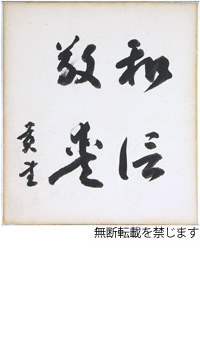 和信
敬愛
無断転載を禁じます